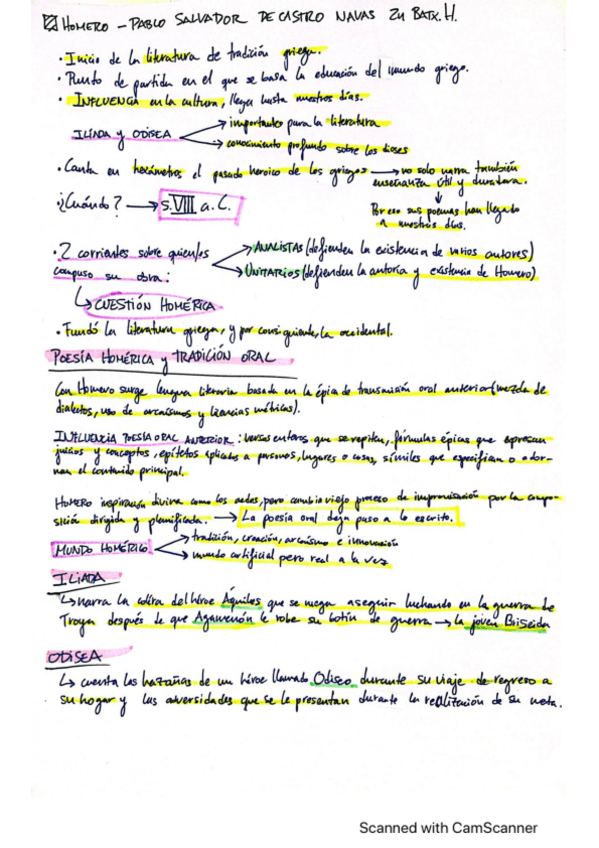 HOMERO – PABLO SALVADOR DE CASTRO NAVAS 2H BATX.H.
· Inicio de la literatura de tradición griega.
· Punto de partida en el que se basa la educación del mundo griego.
· INFLUENCIA en la cultura, llega hasta nuestros días.
ILÍADA y ODISEA → importantes para la literatura
→ conocimiento profundo sobre los dioses
· Canta en hexámetros el pasado heroico de los griegos → no solo narra también
enseñanza útil y duradera.
↓
Por eso sus poemas han llegado
a nuestros días.
· ¿Cuándo? → s.VIII a.C.
· 2 corrientes sobre quien/es
compuso su obra:
→ ANALISTAS (defienden la existencia de varios autores)
→ UNITARIOS (defienden la autoría y existencia de Homero)
↳ CUESTIÓN HOMÉRICA
· Fundó la literatura griega, y por consiguiente, la occidental.
POESÍA HOMÉRICA y TRADICIÓN ORAL
Con Homero surge lengua literaria basada en la épica de transmisión oral anterior (mezcla de
dialectos, uso de arcaísmos y licencias métricas).
INFLUENCIA POESÍA ORAL ANTERIOR: versos enteros que se repiten, fórmulas épicas que expresan
juicios y conceptos, epítetos aplicados a personas, lugares o cosas, símiles que especifican o ador-
nan el contenido principal.
HOMERO inspiración divina como los aedos, pero cambio viejo proceso de improvisación por la compo-
sición dirigida y planificada. → La poesía oral deja paso a lo escrito.
MUNDO HOMÉRICO → tradición, creación, arcaísmo e innovación
→ mundo artificial pero real a la vez
ILIADA
↳ narra la cólera del héroe Aquiles que se niega a seguir luchando en la guerra de
Troya después de que Agamenón le robe su botín de guerra → la joven Briseida
ODISEA
↳ cuenta las hazañas de un héroe llamado Odiseo durante su viaje de regreso a
su hogar y las adversidades que se le presentan durante la realización de su meta.
Scanned with CamScanner